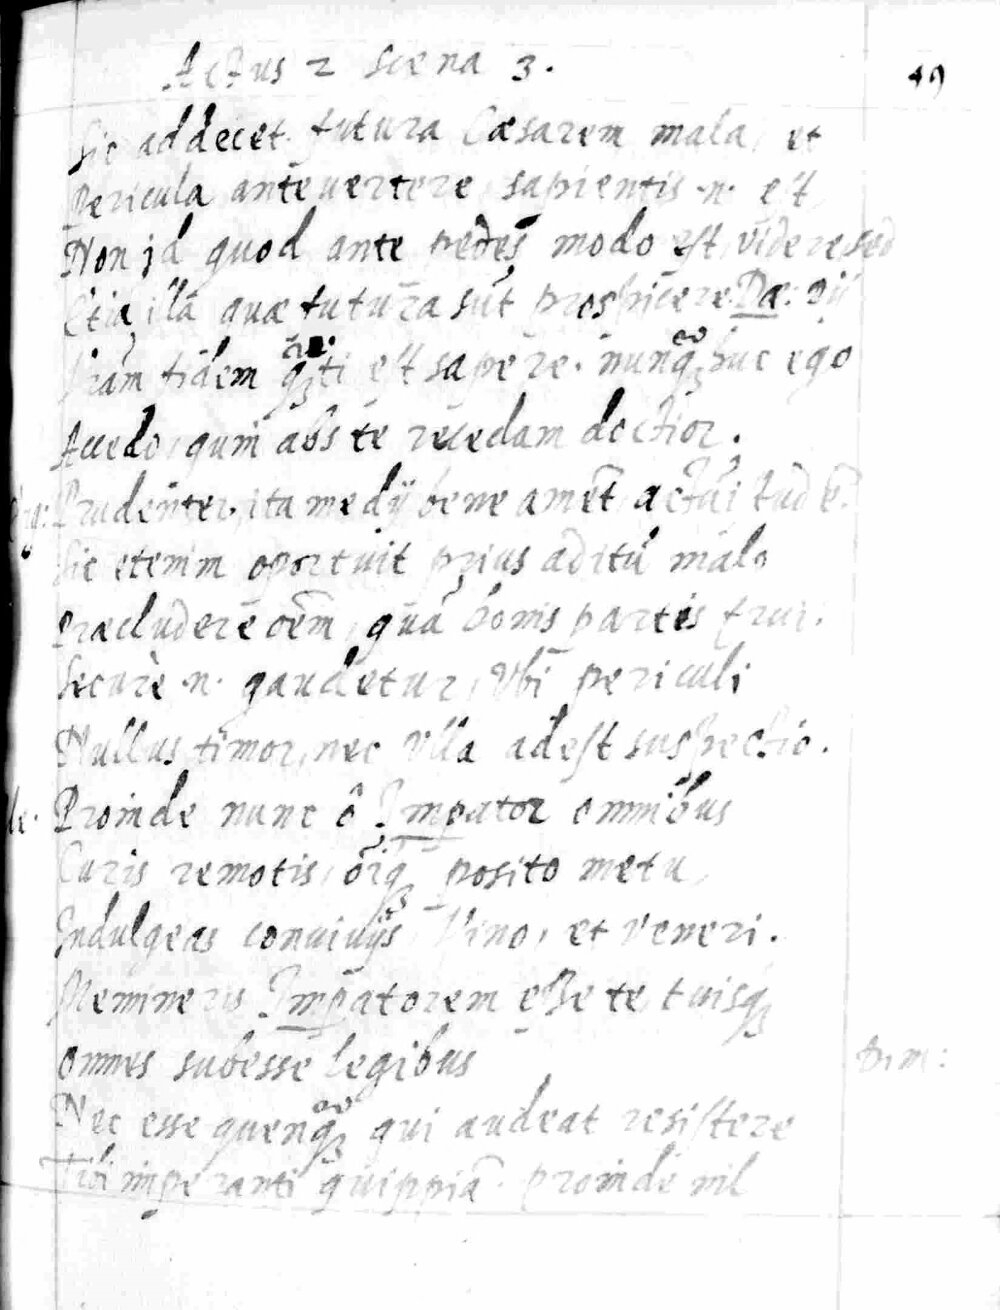 Actus 2 scena 3.
49
Sic addecet futura Cæsarem mala, et
Pericula antevertere, sapientis .n. est,
Non id quod ante pedes modo est, videre sed
Etiā illa quæ futura sūt prospicere. Da: Dii
fidem q̃ti est sapere. nunq̃ huc ego
Accedo, quin abs te recedam doctior.
Prudenter, ita me dij bene amēt, actū
Sic etenim oportuit prius aditū malo
Præcludere oēm, quā bonis partis frui.
Secure .n. gaudetur, Vbi periculi
Nullus timor, nec vlla adest suspectio.
Proinde nunc ô Impator omnibus
Curis remotis, oīq posito metu,
Indulgeas conuiuijs, Vino, et Veneri.
Memineris Impatorem esse te, tuisq
omnes subesse legibus
Dom:
Nec esse quenq̃ qui audeat resistere
Tibi imperanti quippiā. proinde nil